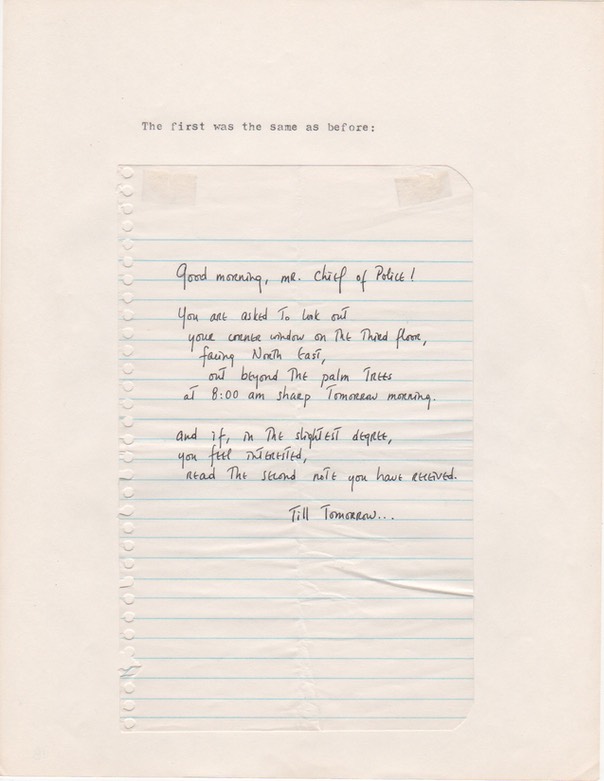 The first was the same as before:
Good morning, mr. Chief of Police!
You are asked to look out
your corner window on the third floor,
facing North East,
out beyond the palm trees
at 8:00 am sharp tomorrow morning.
and if, in the slightest degree,
you feel interested,
read the second note you have received.
Till Tomorrow...